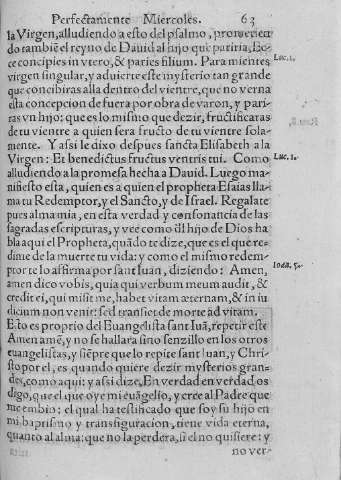 Perfectamente Miercoles. 63
la Virgen, alludiendo a esto del psalmo, prometien
do tambiē el reyno de Dauid al hijo que pariria, Ec-
ce concipies in vtero, & paries filium. Para mientes Luc. 1.
virgen singular, y aduierte este mysterio tan grande
que concibiras alla dentro del vientre, que no verna
esta concepcion de fuera por obra de varon, y pari-
ras vn hijo: que es lo mismo que dezir, fructificaras
de tu vientre a quien sera fructo de tu vientre sola-
mente. Y assi le dixo despues sancta Elisabeth a la
Virgen: Et benedictus fructus ventris tui. Como Luc. 1.
alludiendo a la promesa hecha a Dauid. Luego ma-
nifiesto esta, quien es a quien el propheta Esaias lla-
ma tu Redemptor, y el Sancto, y de Israel. Regalate
pues alma mia, en esta verdad y consonancia de las
sagradas escripturas, y vee como il hijo de Dios ha
bla aqui el Propheta, quādo te dize, que es el que re-
dime de la muerte tu vida: y como el mismo redem-
ptor te lo affirma por sant Iuan, diziendo: Amen, Ioan. 5.
amen dico vobis, quia qui verbum meum audit, &
credit ei, qui misit me, habet vitam æternam, & in iu
dicium non venit: sed transiet de morte ad vitam.
Esto es proprio del Euangelista sant Iuā, repetir este
Amen amē, y no se hallara sino senzillo en los otros
euangelistas, y siēpre que lo repite sant Iuan, y Chri-
sto por el, es quando quiere dezir mysterios gran-
des, como aqui: y assi dize, En verdad en verdad os
digo, que el que oye mi euāgelio, y cree al Padre que
me embio: el qual ha testificado que soy su hijo en
mi baptismo y transfiguracion, tiene vida eterna,
quanto al alma: que no la perdera, si el no quisiere: y
no ver-